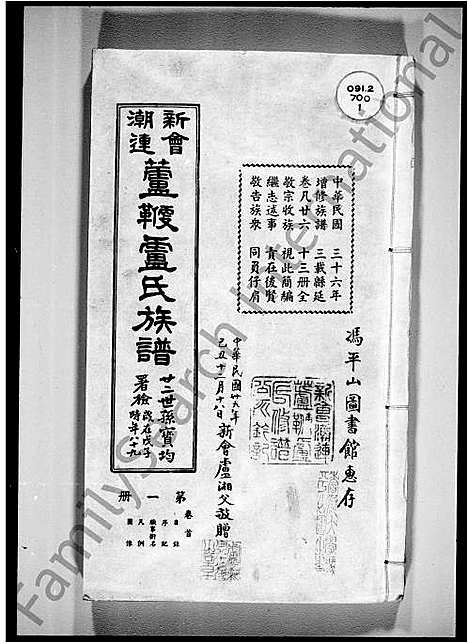 091.2
700
1
中華民國 三十六年
增修族譜 三載緜延
卷凡廿六 十三册全
敬宗收族 視此簡編
繼志述事 責在後賢
敬告族衆 同負仔肩
馮平山圖書館惠存
中華民國廿八年
己丑十二月十八日新會盧湘父敬贈
新會
潮連
蘆鞭盧氏族譜
廿二世孫寶均
署檢
歲在戊子
時年八十九
第一册
卷首
目錄
序記
職事銜名
凡例
圖像
FamilySearch International